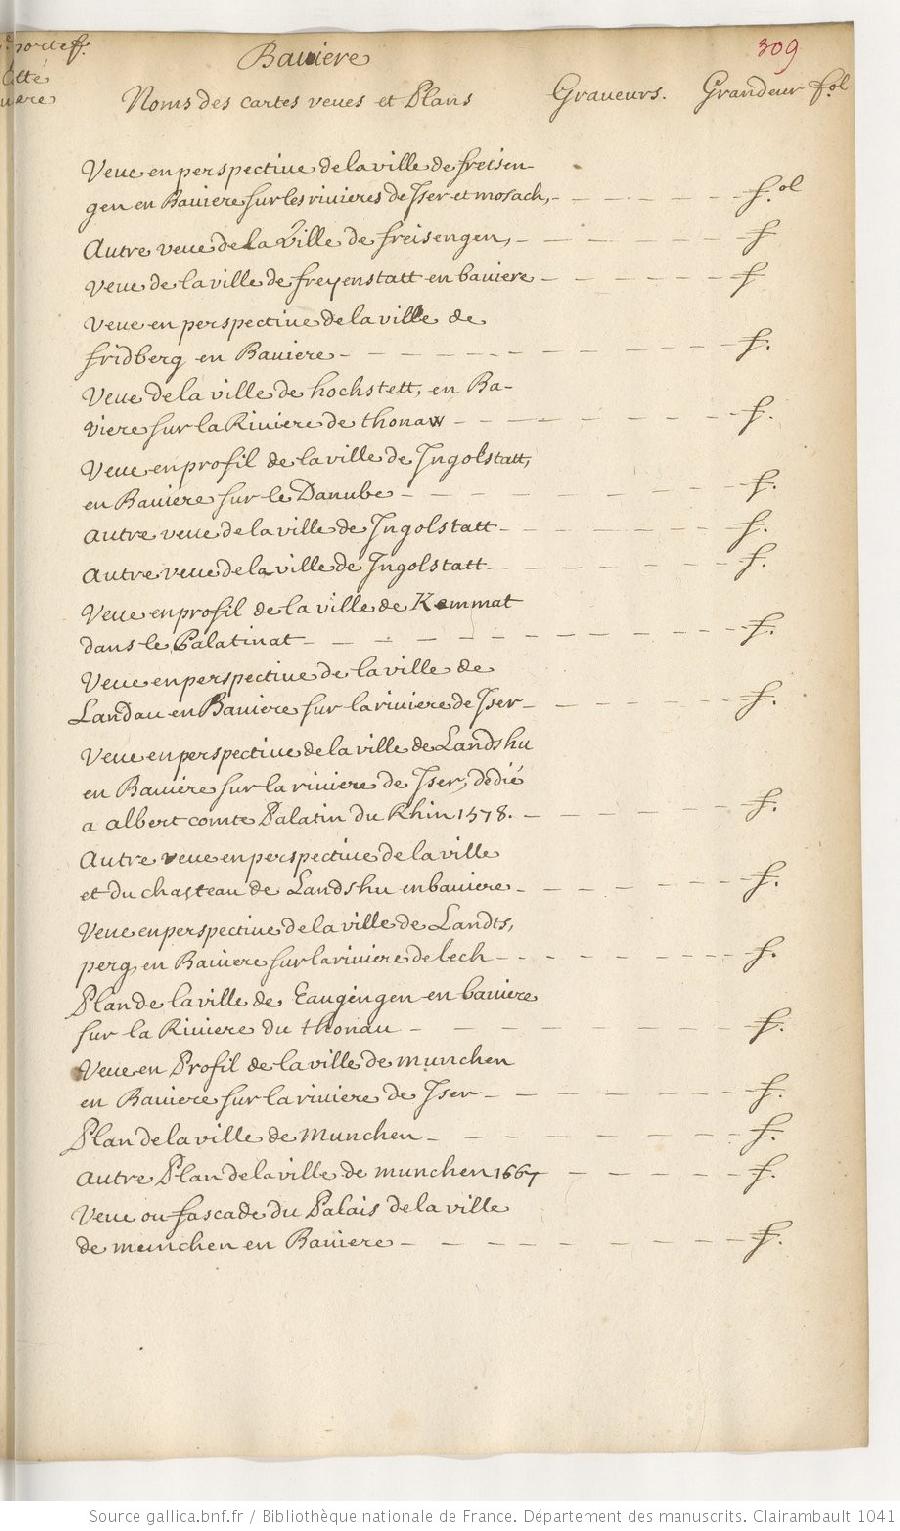 Baviere
309
Noms des cartes veues et Plans Graveurs. Grandeur fol
Veue en perspective de la ville de freisen-
gen en Baviere sur les rivieres de Jser et mosach, f.ol
Autre veue de la Ville de freisengen, f
Veue de la ville de freyenstatt en baviere f
Veue en perspective de la ville de
fridberg en Baviere f.
Veue de la ville de hochstett, en Ba-
viere sur la Riviere de thonaw f.
Veue en profil de la ville de Jngolstatt,
en Baviere sur le Danube f.
Autre veue de la ville de Jngolstatt f.
Autre veue de la ville de Jngolstatt f.
Veue en profil de la ville de Kemmat
dans le Palatinat f.
Veue en perspective de la ville de
Landau en Baviere sur la riviere de Jser f.
Veue en perspective de la ville de Landshu
en Baviere sur la riviere de Jser, dedié
a albert comte Palatin du Rhin 1578. f.
Autre veue en perspective de la ville
et du chasteau de Landshu en baviere f.
Veue en perspective de la ville de Landts,
perg, en Baviere sur la riviere de lech f.
Plan de la ville de Laugingen en baviere
sur la Riviere du thonau f.
Veue en Profil de la ville de munchen
en Baviere sur la riviere de Jser f.
Plan de la ville de Munchen f.
Autre Plan de la ville de munchen 1667 f.
Veue ou fascade du Palais de la ville
de munchen en Baviere f.
Source gallica.bnf.fr / Bibliothèque nationale de France. Département des manuscrits. Clairambault 1041